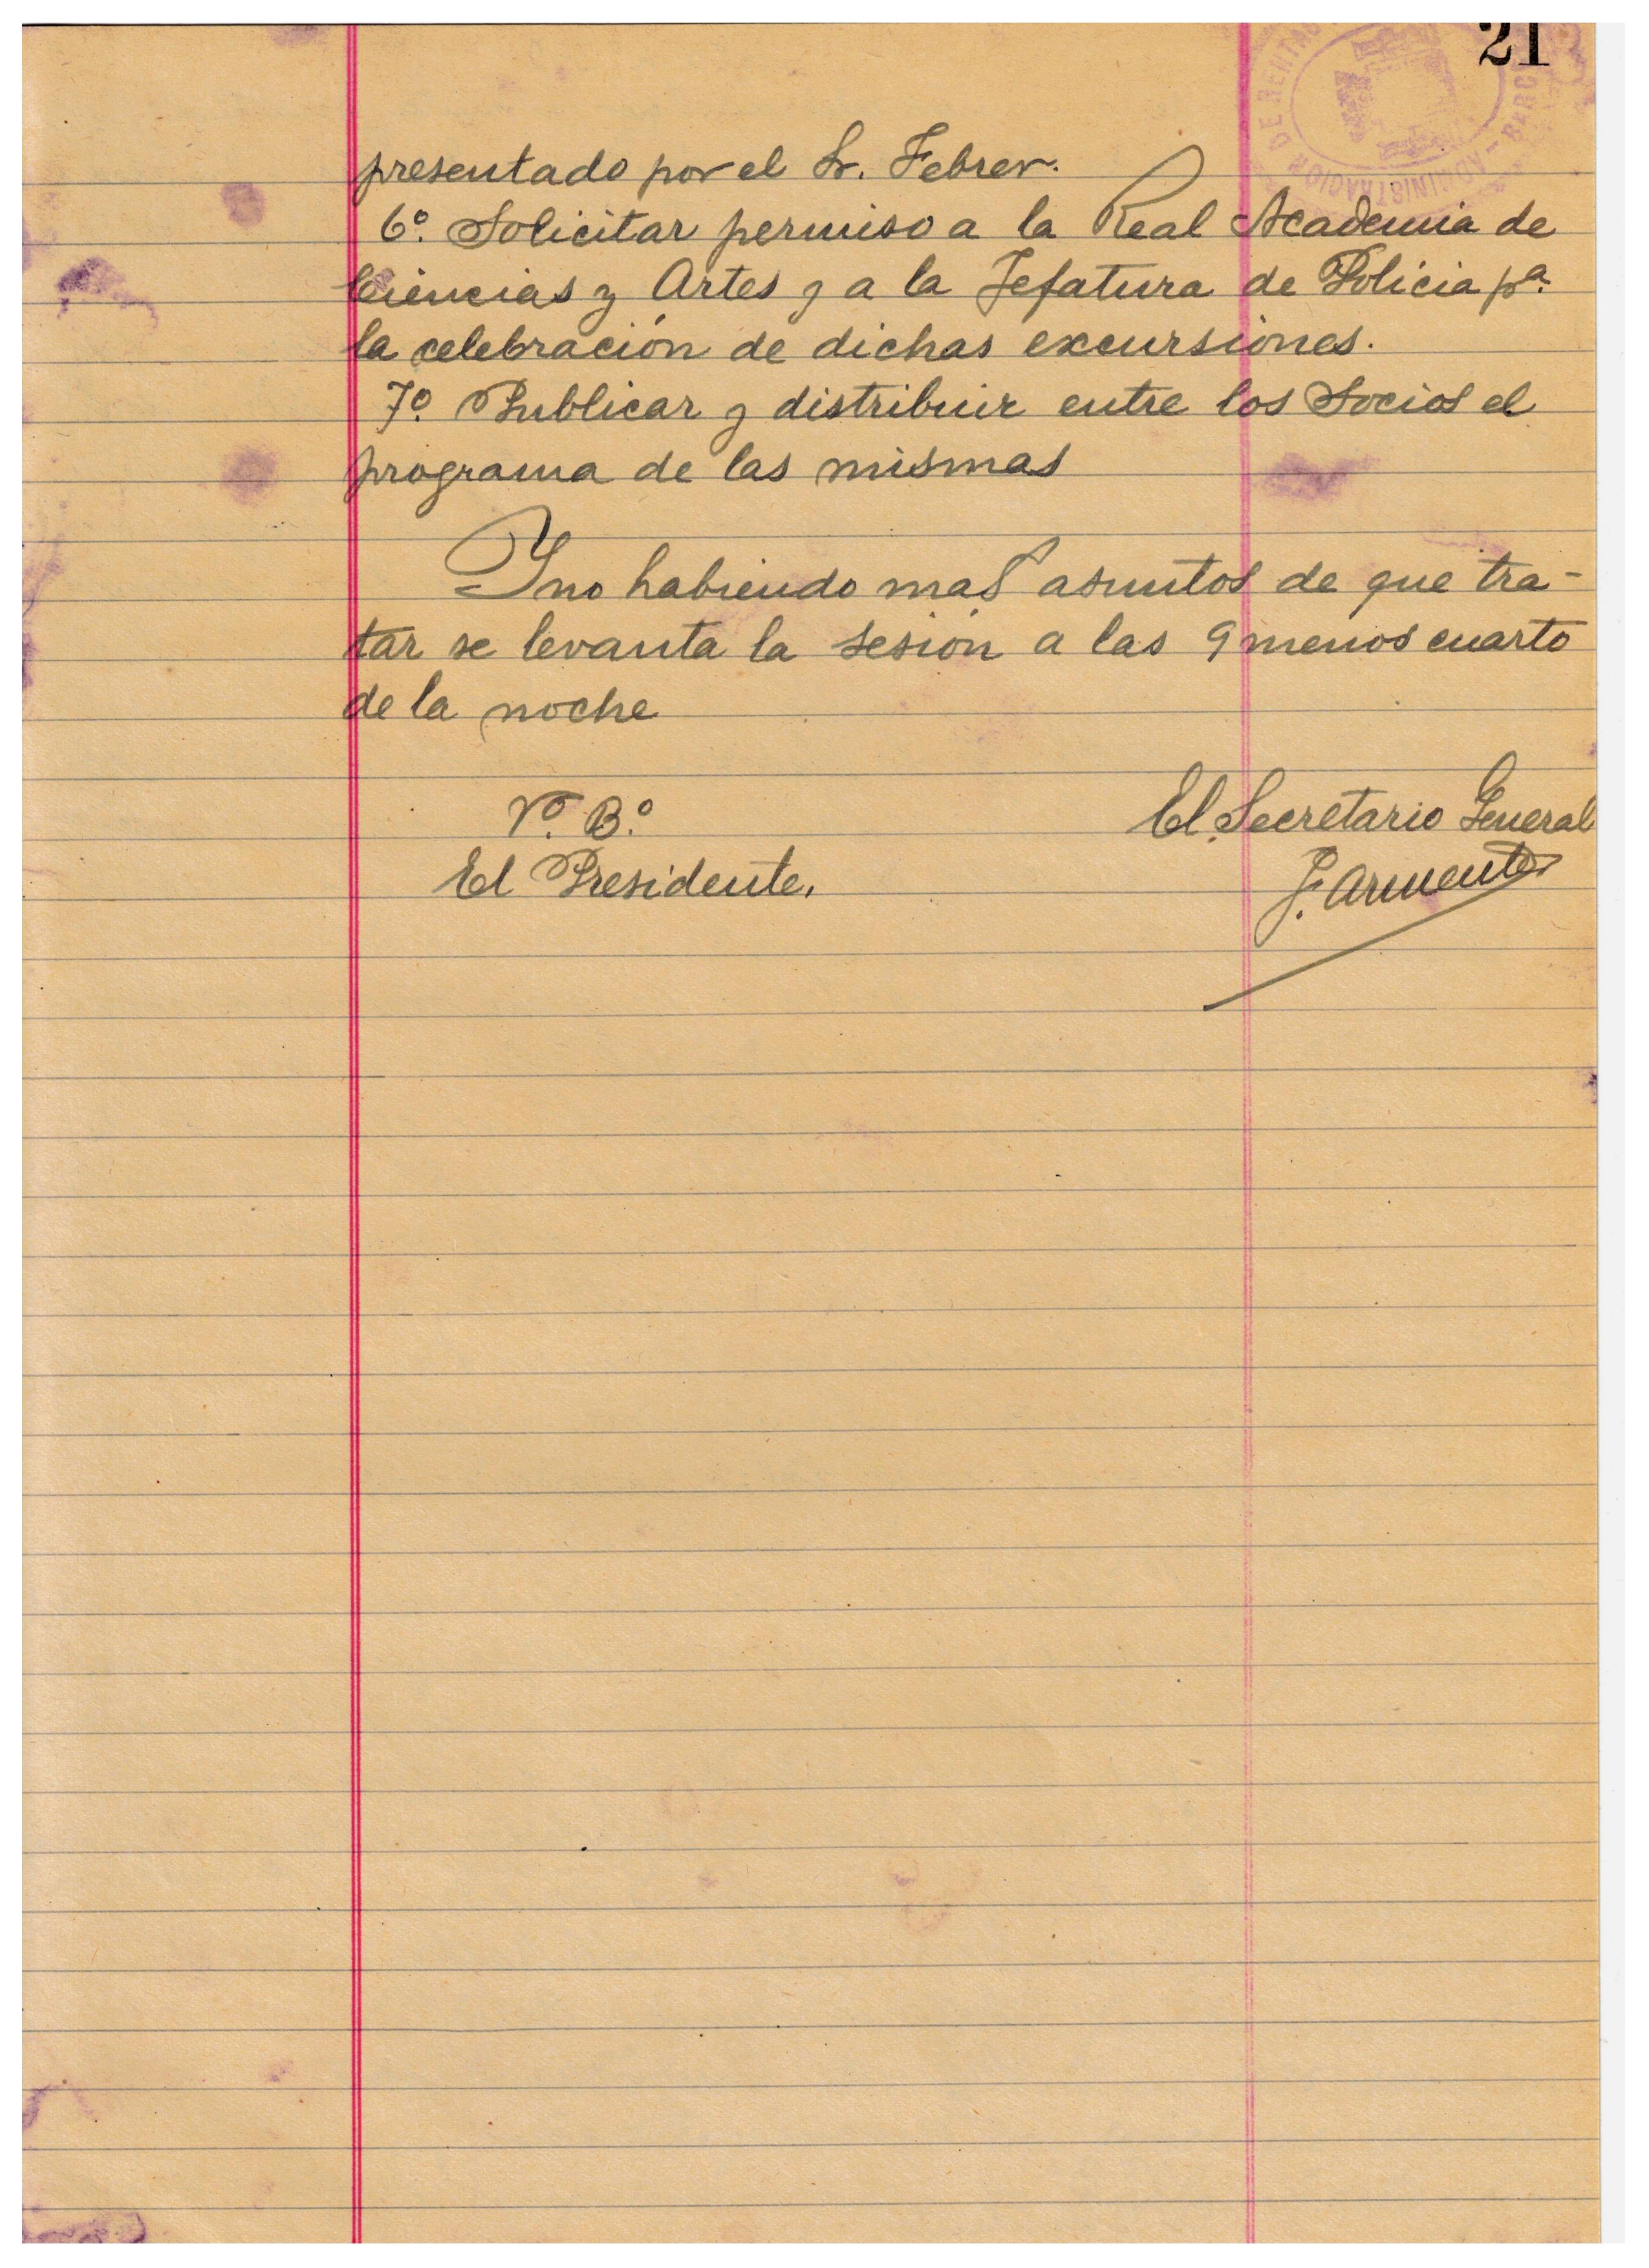 21
ADMINISTRACION DE RENTAS
presentado por el Sr. Febrer.
6º. Solicitar permiso a la Real Academia de
Ciencias y Artes y a la Jefatura de Policia pª.
la celebración de dichas excursiones.
7º. Publicar y distribuir entre los Socios el
programa de las mismas
Y no habiendo mas asuntos de que tra-
tar se levanta la sesión a las 9 menos cuarto
de la noche
Vº. B.º
El Secretario General
El Presidente.
J. Armenter